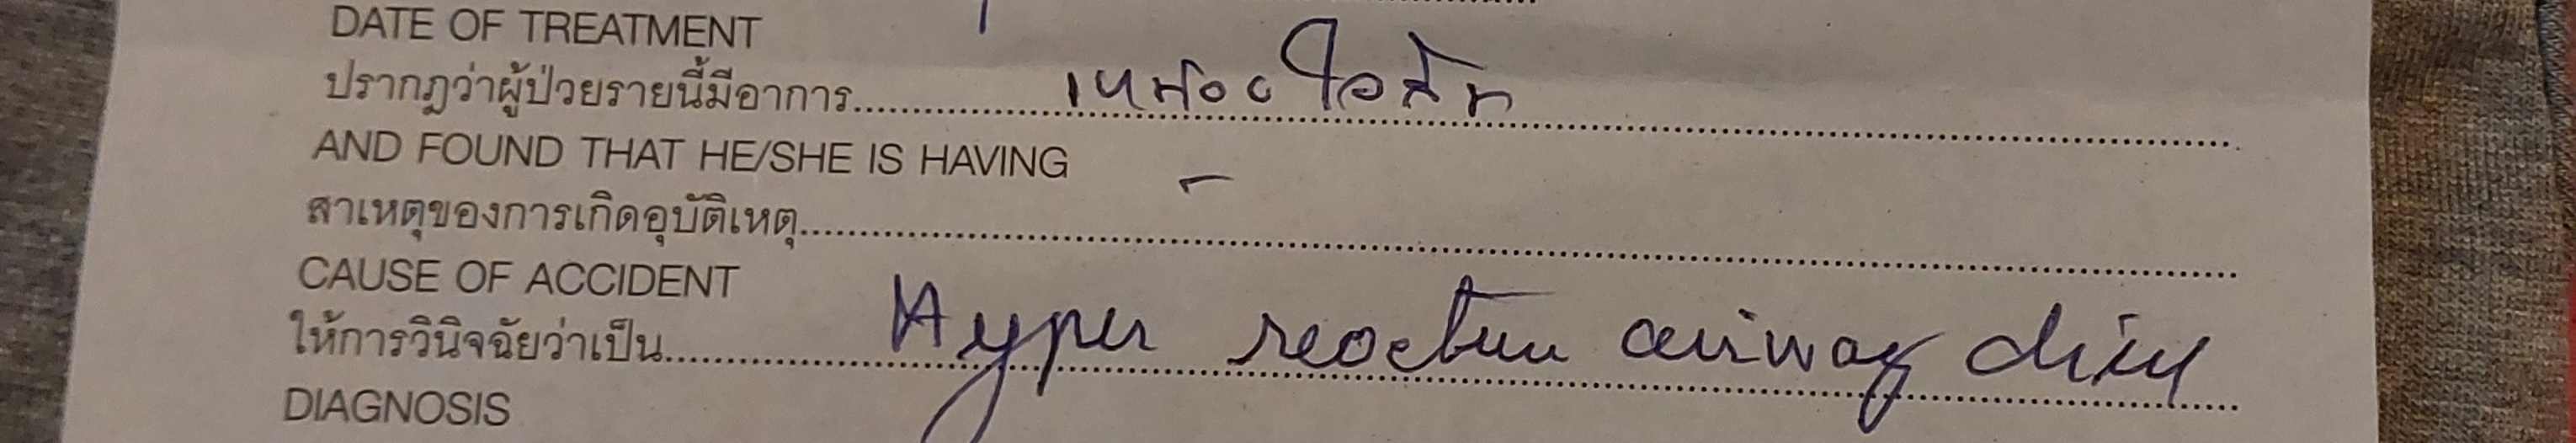 DATE OF TREATMENT
ปรากฏว่าผู้ป่วยรายนี้มีอาการ
AND FOUND THAT HE/SHE IS HAVING
-
สาเหตุของการเกิดอุบัติเหตุ
CAUSE OF ACCIDENT
ให้การวินิจฉัยว่าเป็น Hyper reactive airway
DIAGNOSIS